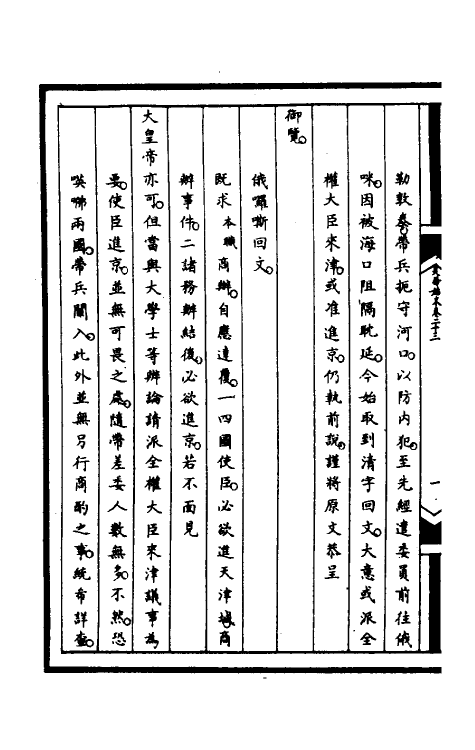 勒敦泰。帶兵扼守河口。以防內犯。至先經遣委員前往俄
咪。因被海口阻隔耽延。今始取到清字回文。大意或派全
權大臣來津。或准進京。仍執前說。謹將原文恭呈
御覽。
俄囉嘶回文。
既求本職商辦。自應速覆。一四國使臣。必欲進天津城。商
辦事件。二諸務辦結後。必欲進京。若不面見
大皇帝亦可。但當與大學士等辦論。請派全權大臣來津議事為
要。使臣進京。並無可畏之處。隨帶差委人數無多。不然。恐
㗸咈兩國。帶兵闖入。此外並無另行商酌之事。統希詳查。
卷二十三
一